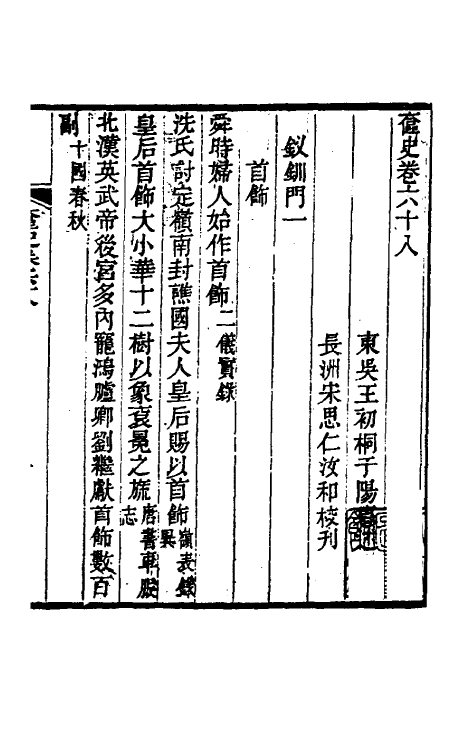 奩史卷六十八
東吳王初桐于陽
長洲宋思仁汝和校刊
釵釧門一
首飾
舜時婦人始作首飾二儀實錄
洗氏討定嶺南封譙國夫人皇后賜以首飾嶺表錄異
皇后首飾大小華十二樹以象袞冕之旒唐書車服志
北漢英武帝後宮多內寵鴻臚卿劉繼獻首飾數百
副十國春秋